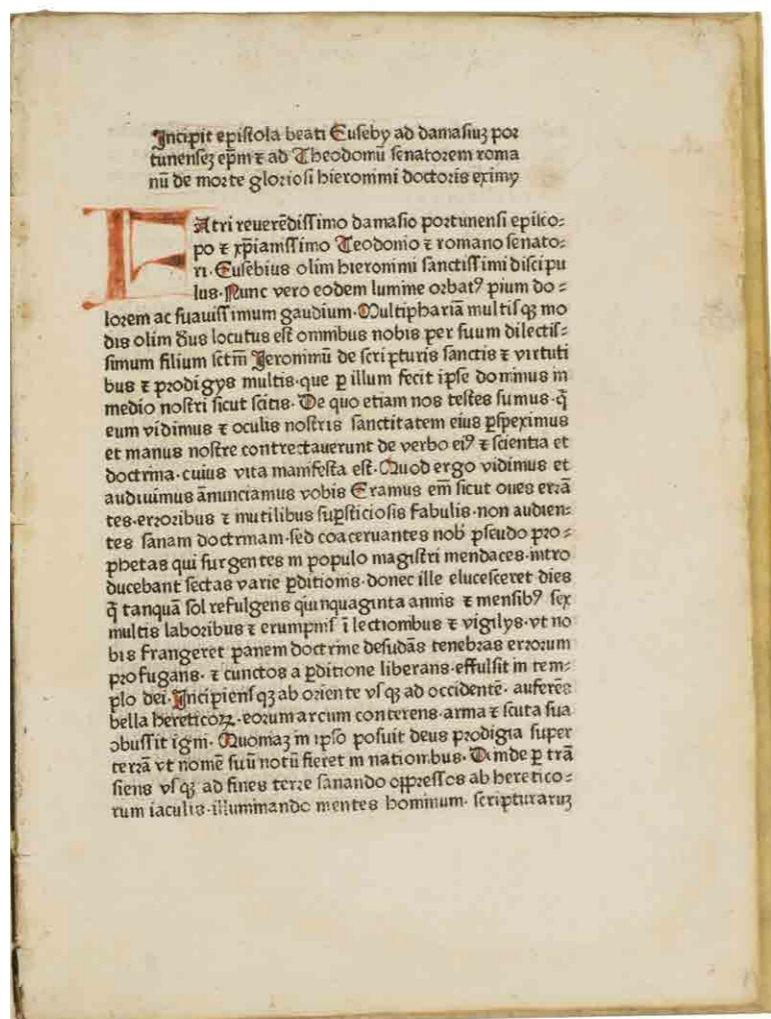 Incipit epistola beati Euseby ad damasiuʒ por
tunenseʒ ep̄m ⁊ ad Theodomū senatorem roma
nū de morte gloriosi hieronimi doctoris eximy
FAtri reuerēdissimo damasio portunensi episco⸗
po ⁊ xp̄ianissimo Teodonio ⁊ romano senato⸗
ri·Eusebius olim hieronimi sanctissimi discipu
lus·Nunc vero eodem lumine orbatꝰ pium do⸗
lorem ac suauissimum gaudium·Multiphariā multisqꝫ mo
dis olim d̄us locutus est omnibus nobis per suum dilectis⸗
simum filium sctm̄ Jeronimū de scripturis sanctis ⁊ virtuti
bus ⁊ prodigys multis·que ꝑ illum fecit ipse dominus in
medio nostri sicut scitis·De quo etiam nos testes sumus·q̄
eum vidimus ⁊ oculis nostris sanctitatem eius ꝑspeximus
et manus nostre contrectauerunt de verbo eiꝰ ⁊ scientia et
doctrina·cuius vita manifesta est·Quod ergo vidimus et
audiuimus ānunciamus vobis Eramus em̄ sicut oues errā
tes·erroribus ⁊ inutilibus suꝑsticiosis fabulis·non audien⸗
tes sanam doctrinam·sed coaceruantes nob̄ pseudo pro⸗
phetas qui surgentes in populo magistri mendaces·intro
ducebant sectas varie ꝑditionis·donec ille elucesceret dies
q̄ tanquā sol refulgens quinquaginta annis ⁊ mensibꝰ sex
multis laboribus ⁊ erumpnis ī lectionibus ⁊ vigilys·vt no
bis frangeret panem doctrine desudās tenebras errorum
profugans·⁊ cunctos a ꝑditione liberans·effulsit in tem⸗
plo dei·Incipiensqꝫ ab oriente vsqꝫ ad occidentē·auferēs
bella hereticoꝝ·eorum arcum conterens·arma ⁊ scuta sua
obussit igni·Quoniaʒ in ipso posuit deus prodigia super
terrā vt nomē suū notū fieret in nationibus·Dinde ꝑ trā
siens vsqꝫ ad fines terre sanando oppressos ab heretico⸗
rum iaculis·illuminando mentes hominum·scripturaruʒ